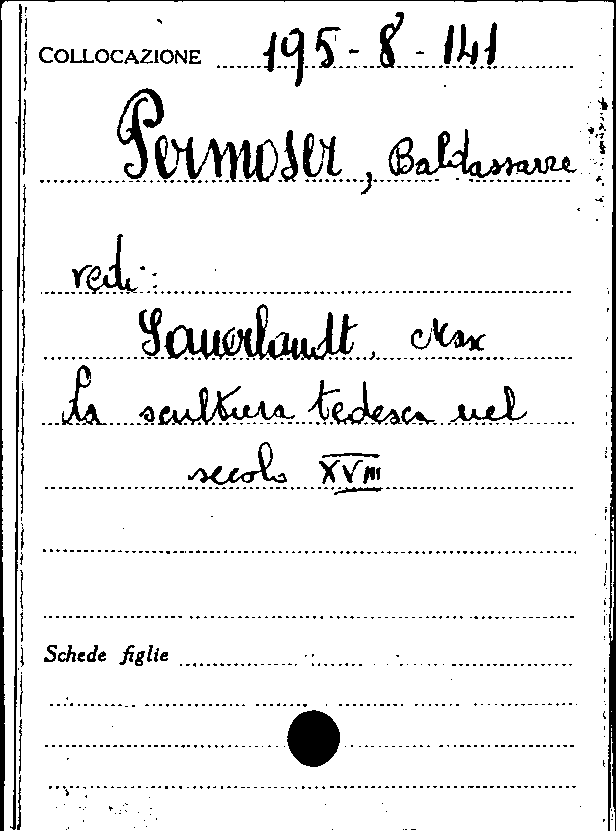 COLLOCAZIONE 195-8-141
Permoser, Baldassarre
vedi:
Sauerlandt, Max
La scultura tedesca nel
secolo XVIII
Schede figlie